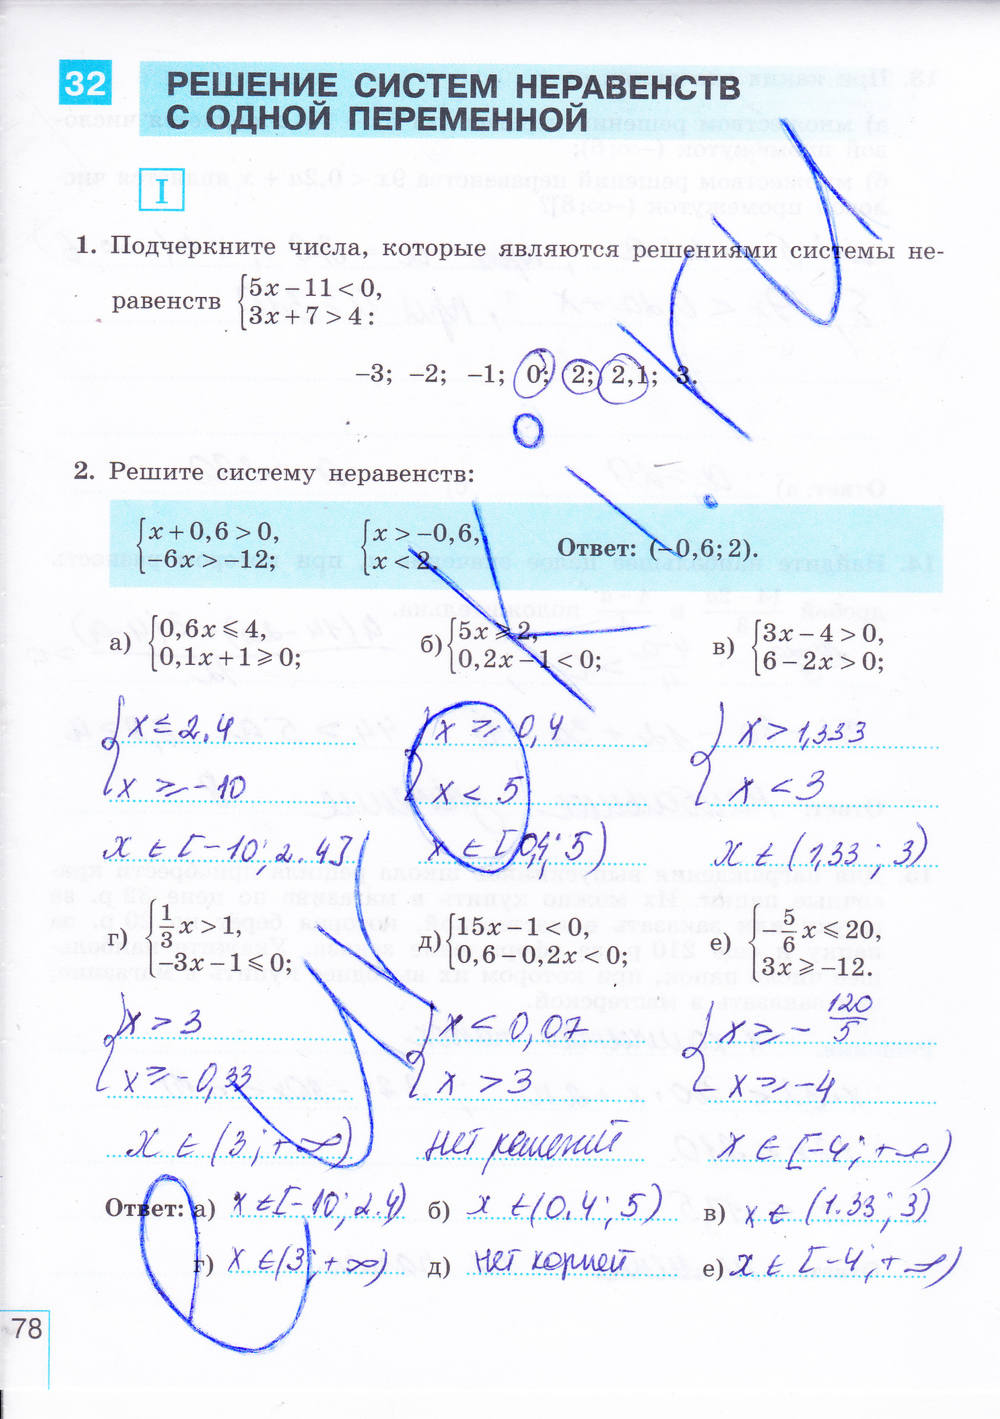 32
РЕШЕНИЕ СИСТЕМ НЕРАВЕНСТВ
С ОДНОЙ ПЕРЕМЕННОЙ
I
1. Подчеркните числа, которые являются решениями системы не-
равенств {5x − 11 < 0,
3x + 7 > 4 :
−3; −2; −1; 0; 2; 2,1; 3.
2. Решите систему неравенств:
{x + 0,6 > 0, {x > −0,6,
−6x > −12; x < 2 Ответ: (−0,6; 2).
а) {0,6x ⩽ 4, б) {5x ⩾ 2, в) {3x − 4 > 0,
0,1x + 1 ⩾ 0; 0,2x − 1 < 0; 6 − 2x > 0;
{x ≤ 2.4 {x ≥ 0,4 {x > 1,333
x ≥ −10 x < 5 x < 3
x ∈ [−10; 2.4] x ∈ [0,4; 5) x ∈ (1,33; 3)
г) {1/3 x > 1, д) {15x − 1 < 0, е) {−5/6 x ⩽ 20,
−3x − 1 ⩽ 0; 0,6 − 0,2x < 0; 3x ⩾ −12.
{x > 3 {x < 0,07 {x ≥ − 120/5
x ≥ −0,33 x > 3 x ≥ −4
x ∈ (3; +∞) нет решений x ∈ [−4; +∞)
Ответ: а) x ∈ [−10; 2.4) б) x ∈ (0.4; 5) в) x ∈ (1.33; 3)
г) x ∈ (3; +∞) д) нет корней е) x ∈ [−4; +∞)
78